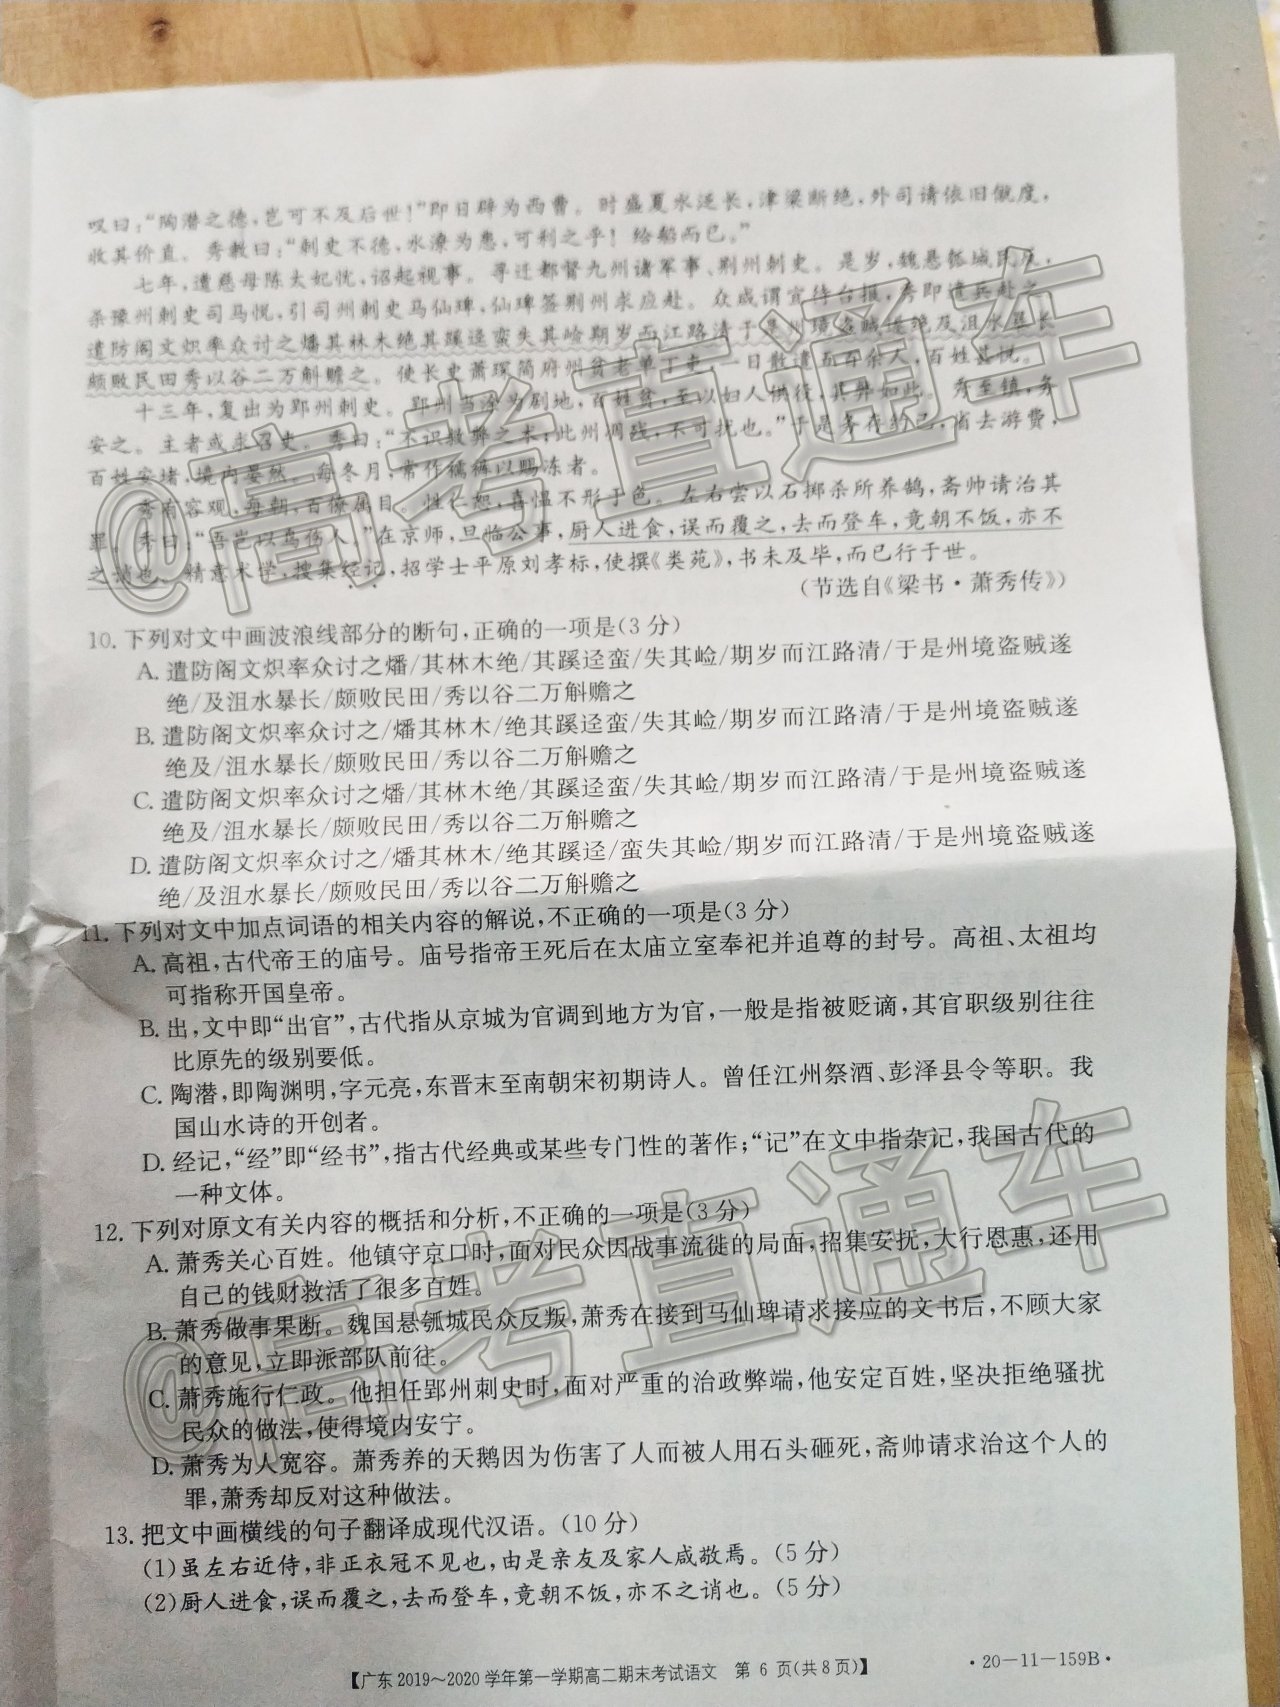 叹曰：“陶潜之德，岂可不及后世！”即日辟为西曹。时盛夏水泛长，津梁断绝，外司请依旧僦度，
收其价直。秀教曰：“刺史不德，水潦为患，可利之乎！给船而已。”
七年，遭慈母陈太妃忧，诏起视事。寻迁都督九州诸军事、荆州刺史。是岁，魏悬瓠城民反，
杀豫州刺史司马悦，引司州刺史马仙琕，仙琕签荆州求应赴。众咸谓宜待台报，秀即遣兵赴之。
遣防阁文炽率众讨之燔其林木绝其蹊迳蛮失其崄期岁而江路清于是州境盗贼遂绝及沮水暴长
颇败民田秀以谷二万斛赡之。使长史萧琛简府州贫老单丁吏，一日散遣五百余人，百姓甚悦。
十三年，复出为郢州刺史。郢州当涂为剧地，百姓贫，至以妇人供役，其弊如此。秀至镇，务
安之。主者或求召吏。秀曰：“不识救弊之术；此州凋残，不可扰也。”于是务存约己，省去游费，
百姓安堵，境内晏然。每冬月，常作襦裤以赐冻者。
秀有容观，每朝，百僚属目。性仁恕，喜愠不形于色。左右尝以石掷杀所养鹤，斋帅请治其
罪。秀曰：“吾岂以鸟伤人。”在京师，旦临公事，厨人进食，误而覆之，去而登车，竟朝不饭，亦不
之诮也。精意术学，搜集经记，招学士平原刘孝标，使撰《类苑》，书未及毕，而已行于世。
（节选自《梁书·萧秀传》）
10. 下列对文中画波浪线部分的断句，正确的一项是（3 分）
A. 遣防阁文炽率众讨之燔/其林木绝/其蹊迳蛮/失其崄/期岁而江路清/于是州境盗贼遂
绝/及沮水暴长/颇败民田/秀以谷二万斛赡之
B. 遣防阁文炽率众讨之/燔其林木/绝其蹊迳蛮/失其崄/期岁而江路清/于是州境盗贼遂
绝及/沮水暴长/颇败民田/秀以谷二万斛赡之
C. 遣防阁文炽率众讨之燔/其林木绝/其蹊迳蛮/失其崄/期岁而江路清/于是州境盗贼遂
绝及/沮水暴长/颇败民田/秀以谷二万斛赡之
D. 遣防阁文炽率众讨之/燔其林木/绝其蹊迳/蛮失其崄/期岁而江路清/于是州境盗贼遂
绝/及沮水暴长/颇败民田/秀以谷二万斛赡之
11. 下列对文中加点词语的相关内容的解说，不正确的一项是（3 分）
A. 高祖，古代帝王的庙号。庙号指帝王死后在太庙立室奉祀并追尊的封号。高祖、太祖均
可指称开国皇帝。
B. 出，文中即“出官”，古代指从京城为官调到地方为官，一般是指被贬谪，其官职级别往往
比原先的级别要低。
C. 陶潜，即陶渊明，字元亮，东晋末至南朝宋初期诗人。曾任江州祭酒、彭泽县令等职。我
国山水诗的开创者。
D. 经记，“经”即“经书”，指古代经典或某些专门性的著作；“记”在文中指杂记，我国古代的
一种文体。
12. 下列对原文有关内容的概括和分析，不正确的一项是（3 分）
A. 萧秀关心百姓。他镇守京口时，面对民众因战事流徙的局面，招集安抚，大行恩惠，还用
自己的钱财救活了很多百姓。
B. 萧秀做事果断。魏国悬瓠城民众反叛，萧秀在接到马仙琕请求接应的文书后，不顾大家
的意见，立即派部队前往。
C. 萧秀施行仁政。他担任郢州刺史时，面对严重的治政弊端，他安定百姓，坚决拒绝骚扰
民众的做法，使得境内安宁。
D. 萧秀为人宽容。萧秀养的天鹅因为伤害了人而被人用石头砸死，斋帅请求治这个人的
罪，萧秀却反对这种做法。
13. 把文中画横线的句子翻译成现代汉语。（10 分）
（1）虽左右近侍，非正衣冠不见也，由是亲友及家人咸敬焉。（5 分）
（2）厨人进食，误而覆之，去而登车，竟朝不饭，亦不之诮也。（5 分）
【广东 2019～2020 学年第一学期高二期末考试语文 第 6 页（共 8 页）】
·20－11－159B·
@高考直通车
@高考直通车